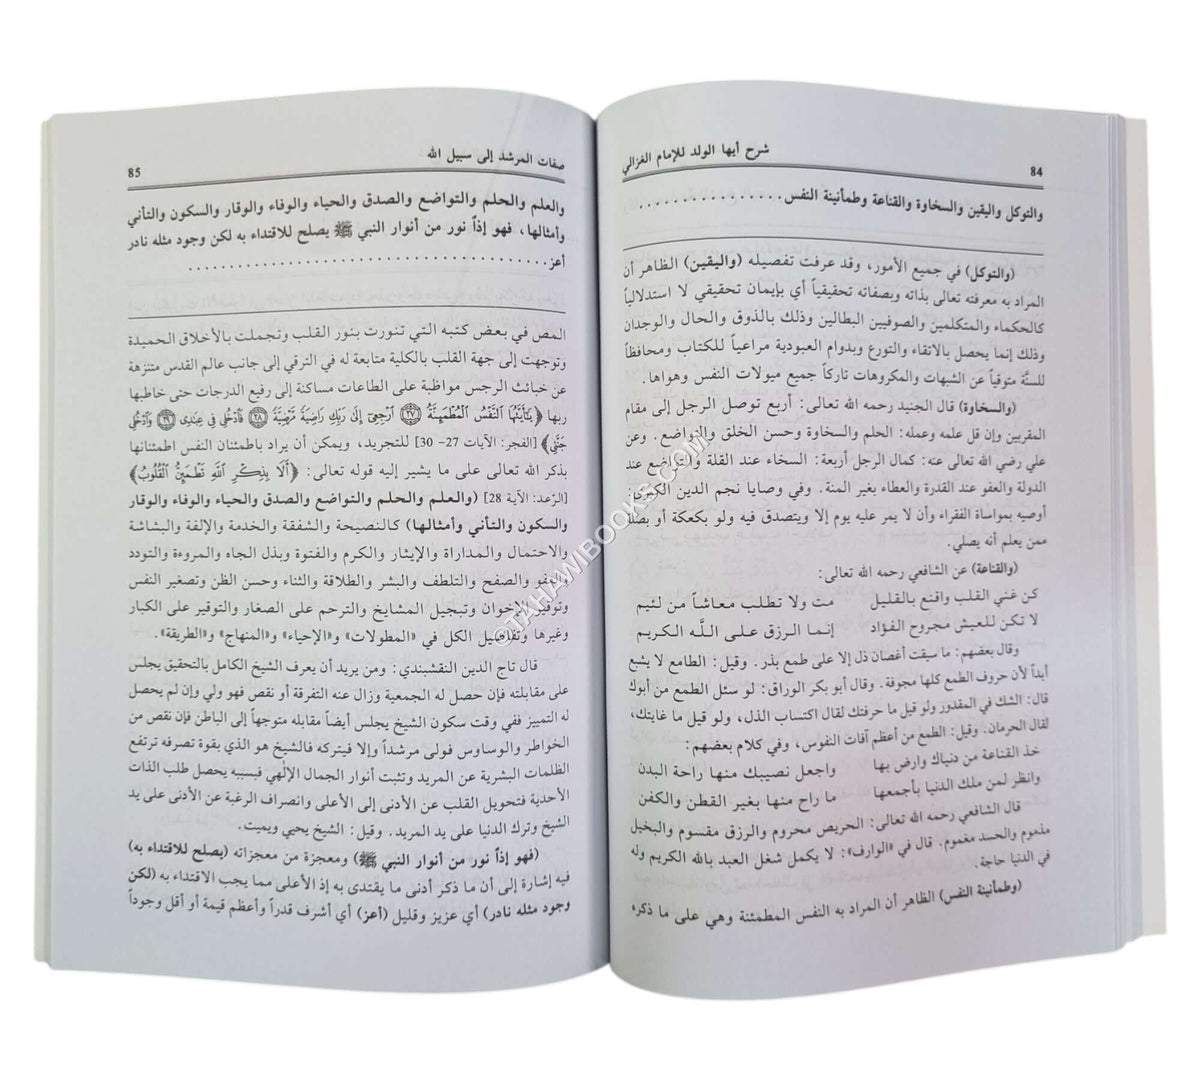 84
شرح أيها الولد للإمام الغزالي
والتوكل واليقين والسخاوة والقناعة وطمأنينة النفس. . . . . . . . . . . . . . . .
(والتوكل) في جميع الأمور، وقد عرفت تفصيله (واليقين) الظاهر أن
المراد به معرفته تعالى بذاته وبصفاته تحقيقياً أي بإيمان تحقيقي لا استدلالياً
كالحكماء والمتكلمين والصوفيين البطالين وذلك بالذوق والحال والوجدان
وذلك إنما يحصل بالاتقاء والتورع وبدوام العبودية مراعياً للكتاب ومحافظاً
للسنَّة متوقياً عن الشبهات والمكروهات تاركاً جميع ميولات النفس وهواها.
(والسخاوة) قال الجنيد رحمه الله تعالى: أربع توصل الرجل إلى مقام
المقربين وإن قل علمه وعمله: الحلم والسخاوة وحسن الخلق والتواضع. وعن
علي رضي الله تعالى عنه: كمال الرجل أربعة: السخاء عند القلة والتواضع عند
الدولة والعفو عند القدرة والعطاء بغير المنة. وفي وصايا نجم الدين
أوصيه بمواساة الفقراء وأن لا يمر عليه يوم إلا ويتصدق فيه ولو بكعكة أو بصلة
ممن يعلم أنه يصلي.
(والقناعة) عن الشافعي رحمه الله تعالى:
كن غني القلب واقنع بالقليل مت ولا تطلب معاشاً من لئيم
لا تكن للعيش مجروح الفؤاد إنما الرزق على اللَّه الكريم
وقال بعضهم: ما سبقت أغصان ذل إلا على طمع بذر. وقيل: الطامع لا يشبع
أبداً لأن حروف الطمع كلها مجوفة. وقال أبو بكر الوراق: لو سئل الطمع من أبوك
قال: الشك في المقدور ولو قيل ما حرفتك لقال اكتساب الذل، ولو قيل ما غايتك،
لقال الحرمان. وقيل: الطمع من أعظم آفات النفوس، وفي كلام بعضهم:
خذ القناعة من دنياك وارض بها واجعل نصيبك منها راحة البدن
وانظر لمن ملك الدنيا بأجمعها ما راح منها بغير القطن والكفن
قال الشافعي رحمه الله تعالى: الحريص محروم والرزق مقسوم والبخيل
مذموم والحسد مغموم. قال في «الوارف»: لا يكمل شغل العبد بالله الكريم وله
في الدنيا حاجة.
(وطمأنينة النفس) الظاهر أن المراد به النفس المطمئنة وهي على ما ذكره
صفات المرشد إلى سبيل الله
85
والعلم والحلم والتواضع والصدق والحياء والوفاء والوقار والسكون والتأني
وأمثالها، فهو إذاً نور من أنوار النبي ﷺ يصلح للاقتداء به لكن وجود مثله نادر
أعز. . . . . . . . . . . . . . . . . . . . . . . . . . . . . . . . . . . . . .
المص في بعض كتبه التي تنورت بنور القلب وتجملت بالأخلاق الحميدة
وتوجهت إلى جهة القلب بالكلية متابعة له في الترقي إلى جانب عالم القدس متنزهة
عن خبائث الرجس مواظبة على الطاعات مساكنة إلى رفيع الدرجات حتى خاطبها
ربها ﴿يَٰٓأَيَّتُهَا ٱلنَّفْسُ ٱلْمُطْمَئِنَّةُ ٢٧ ٱرْجِعِىٓ إِلَىٰ رَبِّكِ رَاضِيَةً مَّرْضِيَّةً ٢٨ فَٱدْخُلِى فِى عِبَٰدِى ٢٩ وَٱدْخُلِى
جَنَّتِى﴾ [الفجر: الآيات 27- 30] للتجريد، ويمكن أن يراد باطمئنان النفس اطمئنانها
بذكر الله تعالى على ما يشير إليه قوله تعالى: ﴿أَلَا بِذِكْرِ ٱللَّهِ تَطْمَئِنُّ ٱلْقُلُوبُ﴾
[الرّعد: الآية 28] (والعلم والحلم والتواضع والصدق والحياء والوفاء والوقار
والسكون والتأني وأمثالها) كالنصيحة والشفقة والخدمة والإلفة والبشاشة
والاحتمال والمداراة والإيثار والكرم والفتوة وبذل الجاه والمروءة والتودد
والعفو والصفح والتلطف والبشر والطلاقة والثناء وحسن الظن وتصغير النفس
وتوقير الإخوان وتبجيل المشايخ والترحم على الصغار والتوقير على الكبار
وغيرها وتفاصيل الكل في «المطولات» و«الإحياء» و«المنهاج» و«الطريقة».
قال تاج الدين النقشبندي: ومن يريد أن يعرف الشيخ الكامل بالتحقيق يجلس
على مقابلته فإن حصل له الجمعية وزال عنه التفرقة أو نقص فهو ولي وإن لم يحصل
له التمييز ففي وقت سكون الشيخ يجلس أيضاً مقابله متوجهاً إلى الباطن فإن نقص من
الخواطر والوساوس فولى مرشداً وإلا فيتركه فالشيخ هو الذي بقوة تصرفه ترتفع
الظلمات البشرية عن المريد وتثبت أنوار الجمال الإلٰهي فبسببه يحصل طلب الذات
الأحدية فتحويل القلب عن الأدنى إلى الأعلى وانصراف الرغبة عن الأدنى على يد
الشيخ وترك الدنيا على يد المريد. وقيل: الشيخ يحيي ويميت.
(فهو إذاً نور من أنوار النبي ﷺ) ومعجزة من معجزاته (يصلح للاقتداء به)
فيه إشارة إلى أن ما ذكر أدنى ما يقتدى به إذ الأعلى مما يجب الاقتداء به (لكن
وجود مثله نادر) أي عزيز وقليل (أعز) أي أشرف قدراً وأعظم قيمة أو أقل وجوداً
TAHAWIBOOKS.COM